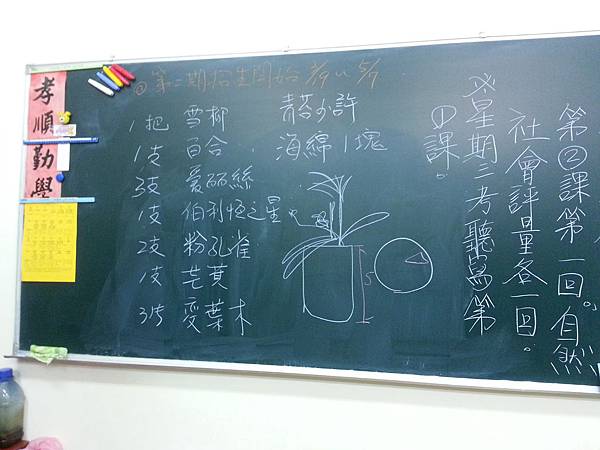 孝順勤學
◎第二期招生開始
1把 雪柳
1支 百合
3支 愛麗絲
1支 伯利恆之星
2支 粉孔雀
1支 芒萁
3片 變葉木
青苔少許
海綿1塊
5
第②課第一回。自然
社會評量各一回。
※星期三考聽寫第
①課。